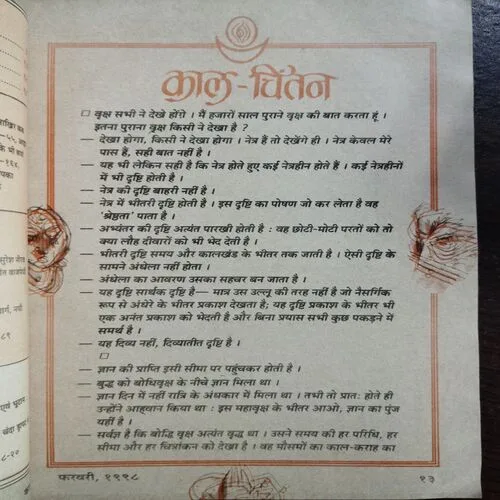 काल-चिंतन
□ वृक्ष सभी ने देखे होंगे । मैं हजारों साल पुराने वृक्ष की बात करता हूं ।
इतना पुराना वृक्ष किसी ने देखा है ?
— देखा होगा, किसी ने देखा होगा । नेत्र हैं तो देखेंगे ही । नेत्र केवल मेरे
पास हैं, सही बात नहीं है ।
— यह भी लेकिन सही है कि नेत्र होते हुए कई नेत्रहीन होते हैं । कई नेत्रहीनों
में भी दृष्टि होती है ।
— नेत्र की दृष्टि बाहरी नहीं है ।
— नेत्र में भीतरी दृष्टि होती है । इस दृष्टि का पोषण जो कर लेता है वह
'श्रेष्ठता' पाता है ।
— अभ्यंतर की दृष्टि अत्यंत पारखी होती है : वह छोटी-मोटी परतों को तो
क्या लौह दीवारों को भी भेद देती है ।
— भीतरी दृष्टि समय और कालखंड के भीतर तक जाती है । ऐसी दृष्टि के
सामने अंधेला नहीं होता ।
— अंधेला का आवरण उसका सहचर बन जाता है ।
— यह दृष्टि सार्थक दृष्टि है— मात्र उस उल्लू की तरह नहीं है जो नैसर्गिक
रूप से अंधेरे के भीतर प्रकाश देखता है; यह दृष्टि प्रकाश के भीतर भी
एक अनंत प्रकाश को भेदती है और बिना प्रयास सभी कुछ पकड़ने में
समर्थ है ।
— यह दिव्य नहीं, दिव्यातीत दृष्टि है ।
□
— ज्ञान की प्राप्ति इसी सीमा पर पहुंचकर होती है ।
— बुद्ध को बोधिवृक्ष के नीचे ज्ञान मिला था ।
— ज्ञान दिन में नहीं रात्रि के अंधकार में मिला था । तभी तो प्रातः होते ही
उन्होंने आह्वान किया था : इस महावृक्ष के भीतर आओ, ज्ञान का पुंज
यहीं है ।
— सर्वज्ञ है कि बोद्धि वृक्ष अत्यंत वृद्ध था । उसने समय की हर परिधि, हर
सीमा और हर चित्रांकन को देखा है । वह मौसमों का काल-कराह का
फरवरी, १९९८
१३
सुरेश नीरव
८९
८-२०